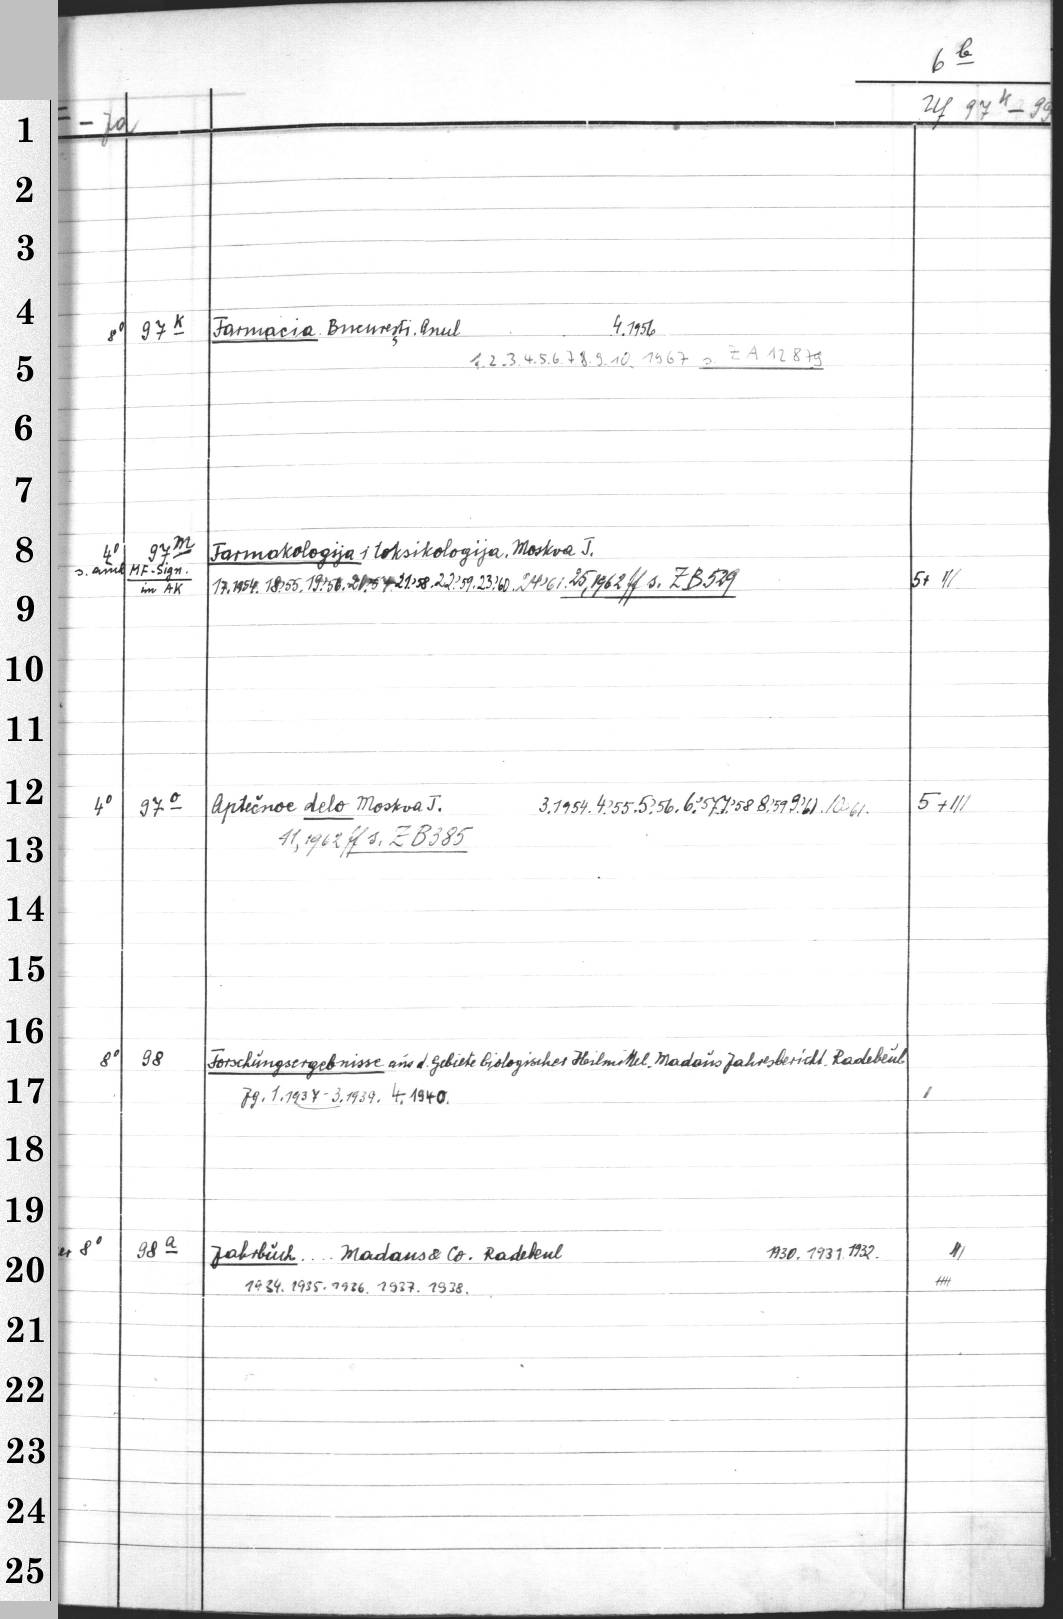 6 b
1 – Ja 97 k – 99
2
3
4
8° 97 k Farmacia. București. Anul 4.1956
5 1.2.3.4.5.6.7.8.9.10. 1967 s. ZA 12879
6
7
8 4° 97 m Farmakologija i toksikologija. Moskva T.
s. auch MF-Sign. 17.1954. 18:55. 19:56. 20:57 21:58. 22:59. 23:60. 24:61. 25,1962 ff s. ZB529 5+ III
im AK
9
10
11
12 4° 97 o Aptečnoe delo Moskva T. 3.1954. 4:55. 5:56. 6:57. 7:58 8:59 9:60. 10:61. 5 + III
13 11,1962 ff s. ZB385
14
15
16
8° 98 Forschungsergebnisse aus d. Gebiete biologischer Heilmittel. Madaus Jahresbericht. Radebeul
17 Jg. 1.1937-3.1939. 4.1940. I
18
19
er 8° 98 a Jahrbuch .... Madaus & Co. Radebeul 1930. 1931. 1932. III
20 1934. 1935. 1936. 1937. 1938.
21
22
23
24
25